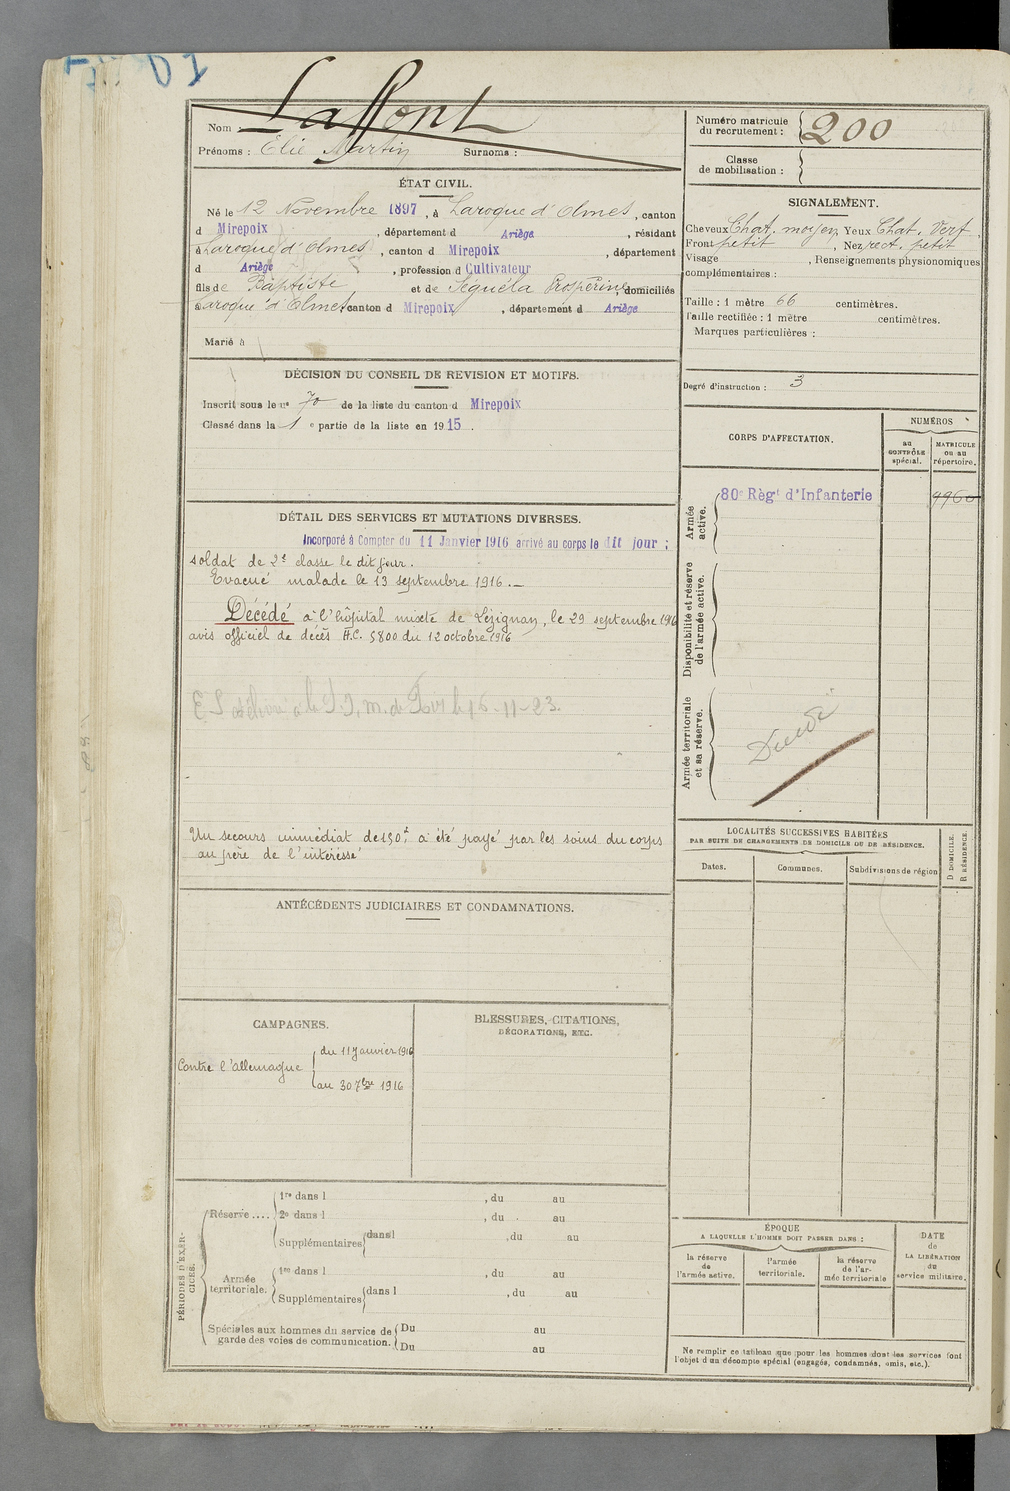 Nom Laffont
Prénoms : Elie Martin Surnoms :
Numéro matricule du recrutement : 200
Classe de mobilisation :
ÉTAT CIVIL.
Né le 12 Novembre 1897, à Laroque d'Olmes, canton
d Mirepoix, département d Ariège, résidant
à Laroque d'Olmes, canton d Mirepoix, département
d Ariège, profession d Cultivateur
fils de Baptiste et de Séguéla Prosperine, domiciliés
à Laroque d'Olmes canton d Mirepoix, département d Ariège
Marié à
SIGNALEMENT.
Cheveux Chat. moyen Yeux Chat. Vert
Front petit, Nez rect. petit
Visage, Renseignements physionomiques
complémentaires :
Taille : 1 mètre 66 centimètres.
Taille rectifiée : 1 mètre centimètres.
Marques particulières :
Degré d'instruction : 3
DÉCISION DU CONSEIL DE REVISION ET MOTIFS.
Inscrit sous le nº 70 de la liste du canton d Mirepoix
Classé dans la 1 e partie de la liste en 1915.
CORPS D'AFFECTATION.
NUMÉROS
au CONTRÔLE spécial.
MATRICULE ou au répertoire.
Armée active.
80e Régt d'Infanterie 9960
Disponibilité et réserve de l'armée active.
Armée territoriale et sa réserve.
DÉTAIL DES SERVICES ET MUTATIONS DIVERSES.
Incorporé à Compter du 11 Janvier 1916 arrivé au corps le dit jour ;
soldat de 2e classe le dit jour.
Evacué malade le 13 septembre 1916. —
Décédé à l'hôpital mixte de Lézignan, le 29 septembre 1916
avis officiel de décès A.C. 5800 du 12 octobre 1916
Un secours immédiat de 150f a été payé par les soins du corps
au père de l'intéressé
LOCALITÉS SUCCESSIVES HABITÉES
PAR SUITE DE CHANGEMENTS DE DOMICILE OU DE RÉSIDENCE.
Dates. Communes. Subdivisions de région
D DOMICILE.
R RÉSIDENCE.
ANTÉCÉDENTS JUDICIAIRES ET CONDAMNATIONS.
CAMPAGNES.
Contre l'allemagne
du 11 Janvier 1916
au 30 7bre 1916
BLESSURES, CITATIONS,
DÉCORATIONS, ETC.
PÉRIODES D'EXERCICES.
Réserve ....
1re dans l, du au
2e dans l, du au
Supplémentaires dans l, du au
Armée territoriale.
1re dans l, du au
Supplémentaires dans l, du au
Spéciales aux hommes du service de
garde des voies de communication.
Du au
Du au
ÉPOQUE
A LAQUELLE L'HOMME DOIT PASSER DANS :
la réserve de l'armée active.
l'armée territoriale.
la réserve de l'armée territoriale
DATE de LA LIBÉRATION du service militaire.
Ne remplir ce tableau que pour les hommes dont les services font
l'objet d'un décompte spécial (engagés, condamnés, omis, etc.).